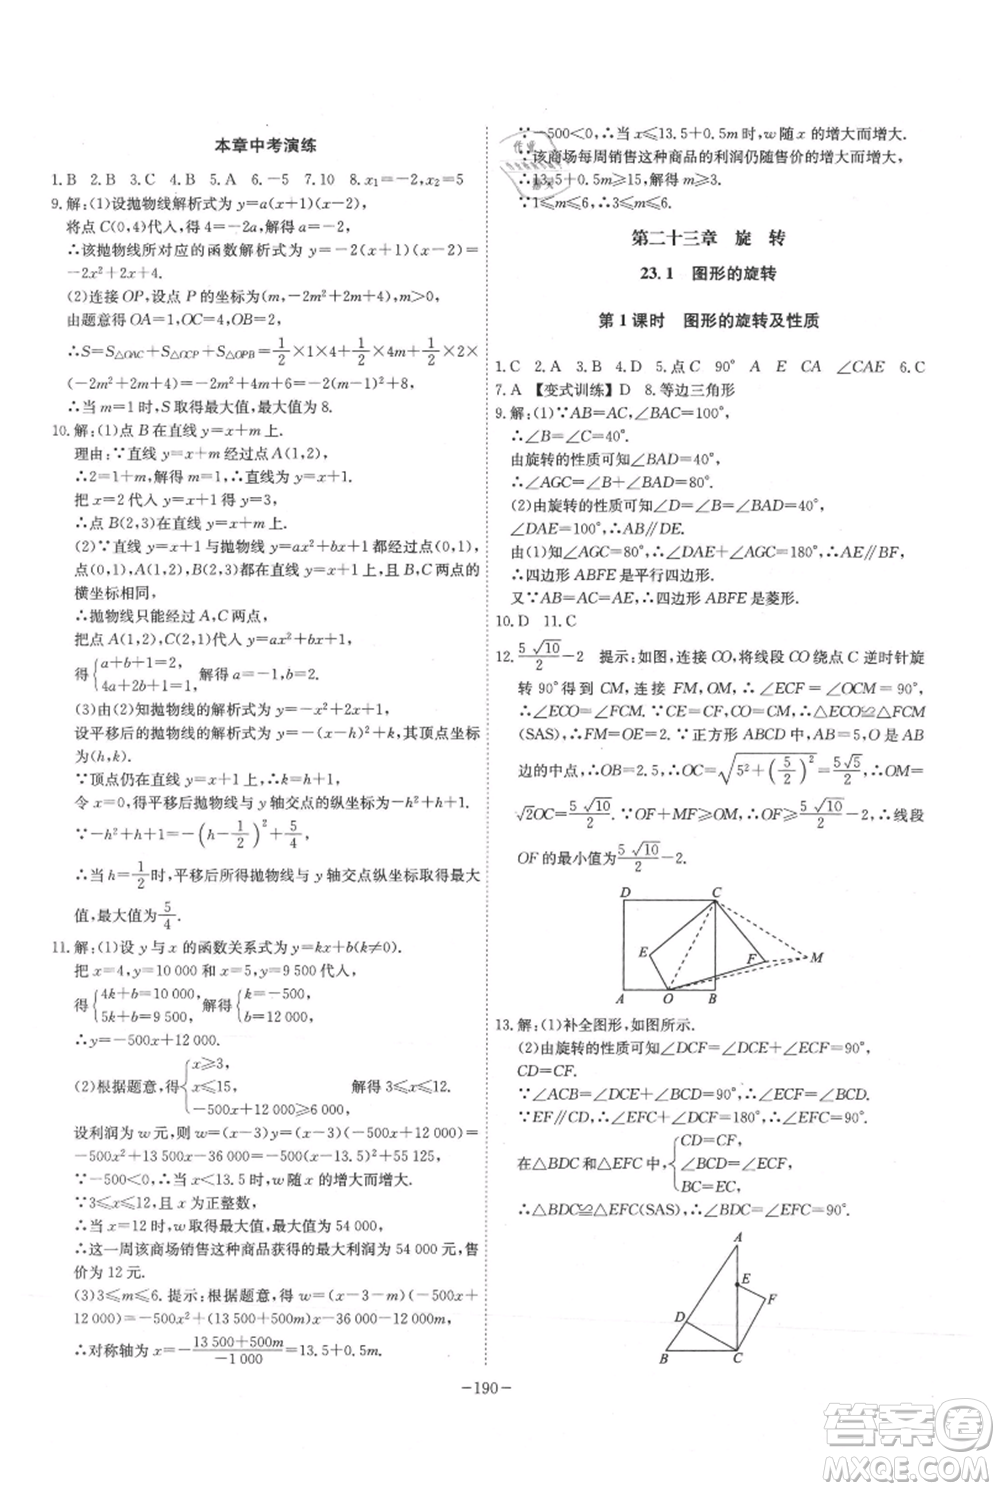 本章中考演练
1. B 2. B 3. C 4. B 5. A 6. -5 7. 10 8. x₁=-2, x₂=5
9. 解:(1)设抛物线解析式为 y=a(x+1)(x-2),
将点 C(0,4)代入,得 4=-2a,解得 a=-2,
∴该抛物线所对应的函数解析式为 y=-2(x+1)(x-2)=
-2x²+2x+4.
(2)连接 OP,设点 P 的坐标为(m,-2m²+2m+4),m>0,
由题意得 OA=1,OC=4,OB=2,
∴S=S△OAC+S△OCP+S△OPB=1/2×1×4+1/2×4m+1/2×2×
(-2m²+2m+4)=-2m²+4m+6=-2(m-1)²+8,
∴当 m=1 时,S 取得最大值,最大值为 8.
10. 解:(1)点 B 在直线 y=x+m 上.
理由:∵直线 y=x+m 经过点 A(1,2),
∴2=1+m,解得 m=1,∴直线为 y=x+1.
把 x=2 代入 y=x+1 得 y=3,
∴点 B(2,3)在直线 y=x+m 上.
(2)∵直线 y=x+1 与抛物线 y=ax²+bx+1 都经过点(0,1),
点(0,1),A(1,2),B(2,3)在直线 y=x+1 上,且 B,C 两点的
横坐标相同,
∴抛物线只能经过 A,C 两点,
把点 A(1,2),C(2,1)代入 y=ax²+bx+1,
得{a+b+1=2, 4a+2b+1=1, 解得 a=-1,b=2.
(3)由(2)知抛物线的解析式为 y=-x²+2x+1,
设平移后的抛物线的解析式为 y=-(x-h)²+k,其顶点坐标为
(h,k).
∵顶点仍在直线 y=x+1 上,∴k=h+1.
令 x=0,得到平移后抛物线与 y 轴交点的纵坐标为-h²+h+1.
∵-h²+h+1=-(h-1/2)²+5/4,
∴当 h=1/2时,平移后所得抛物线与 y 轴交点纵坐标取得最大
值,最大值为5/4.
11. 解:(1)设 y 与 x 的函数关系式为 y=kx+b(k≠0).
把 x=4,y=10 000 和 x=5,y=9 500 代入,
得{4k+b=10 000, 5k+b=9 500, 解得{k=-500, b=12 000.
∴y=-500x+12 000.
(2)根据题意,得{x≥3, x≤15, -500x+12 000≥6 000, 解得 3≤x≤12.
设利润为 w 元,则 w=(x-3)y=(x-3)(-500x+12 000)=
-500x²+13 500x-36 000=-500(x-13.5)²+55 125,
∵-500<0,∴当 x<13.5 时,w 随 x 的增大而增大.
∵3≤x≤12,且 x 为正整数,
∴当 x=12 时,w 取得最大值,最大值为 54 000,
∴这一周该商场销售这种商品获得的最大利润为 54 000 元,售
价为 12 元.
(3)3≤m≤6. 提示:根据题意,得 w=(x-3-m)(-500x+
12 000)=-500x²+(13 500+500m)x-36 000-12 000m,
∴对称轴为 x=-(13 500+500m)/(-1 000)=13.5+0.5m.
∵-500<0,∴当 x≤13.5+0.5m 时,w 随 x 的增大而增大.
∵该商场每周销售这种商品的利润仍随售价的增大而增大,
∴13.5+0.5m≥15,解得 m≥3.
∵1≤m≤6,∴3≤m≤6.
第二十三章 旋 转
23.1 图形的旋转
第 1 课时 图形的旋转及性质
1. C 2. A 3. B 4. D 5. 点 C 90° A EA CA ∠CAE 6. C
7. A 【变式训练】D 8. 等边三角形
9. 解:(1)∵AB=AC,∠BAC=100°,
∴∠B=∠C=40°.
由旋转的性质可知∠BAD=40°,
∴∠AGC=∠B+∠BAD=80°.
(2)由旋转的性质可知∠D=∠B=∠BAD=40°,
∠DAE=100°,∴AB∥DE.
由(1)知∠AGC=80°,∴∠DAE+∠AGC=180°,∴AE∥BF,
∴四边形 ABFE 是平行四边形.
又∵AB=AC=AE,∴四边形 ABFE 是菱形.
10. D 11. C
12. 5√10/2-2 提示:如图,连接 CO,将线段 CO 绕点 C 逆时针旋
转 90°得到 CM,连接 FM,OM,∴∠ECF=∠OCM=90°,
∴∠ECO=∠FCM.∵CE=CF,CO=CM,∴△ECO≌△FCM
(SAS),∴FM=OE=2.∵正方形 ABCD 中,AB=5,O 是 AB
边的中点,∴OB=2.5,∴OC=√(5²+(5/2)²)=5√5/2,∴OM=
√2OC=5√10/2.∵OF+MF≥OM,∴OF≥5√10/2-2,∴线段
OF 的最小值为5√10/2-2.
D C
E F M
A O B
13. 解:(1)补全图形,如图所示.
(2)由旋转的性质可知∠DCF=∠DCE+∠ECF=90°,
CD=CF.
∵∠ACB=∠DCE+∠BCD=90°,∴∠ECF=∠BCD.
∵EF∥CD,∴∠EFC+∠DCF=180°,∴∠EFC=90°.
在△BDC 和△EFC 中,{CD=CF, ∠BCD=∠ECF, BC=EC,
∴△BDC≌△EFC(SAS),∴∠BDC=∠EFC=90°.
A
E
F
D
B C
-190-
答案圈
MXQE.COM